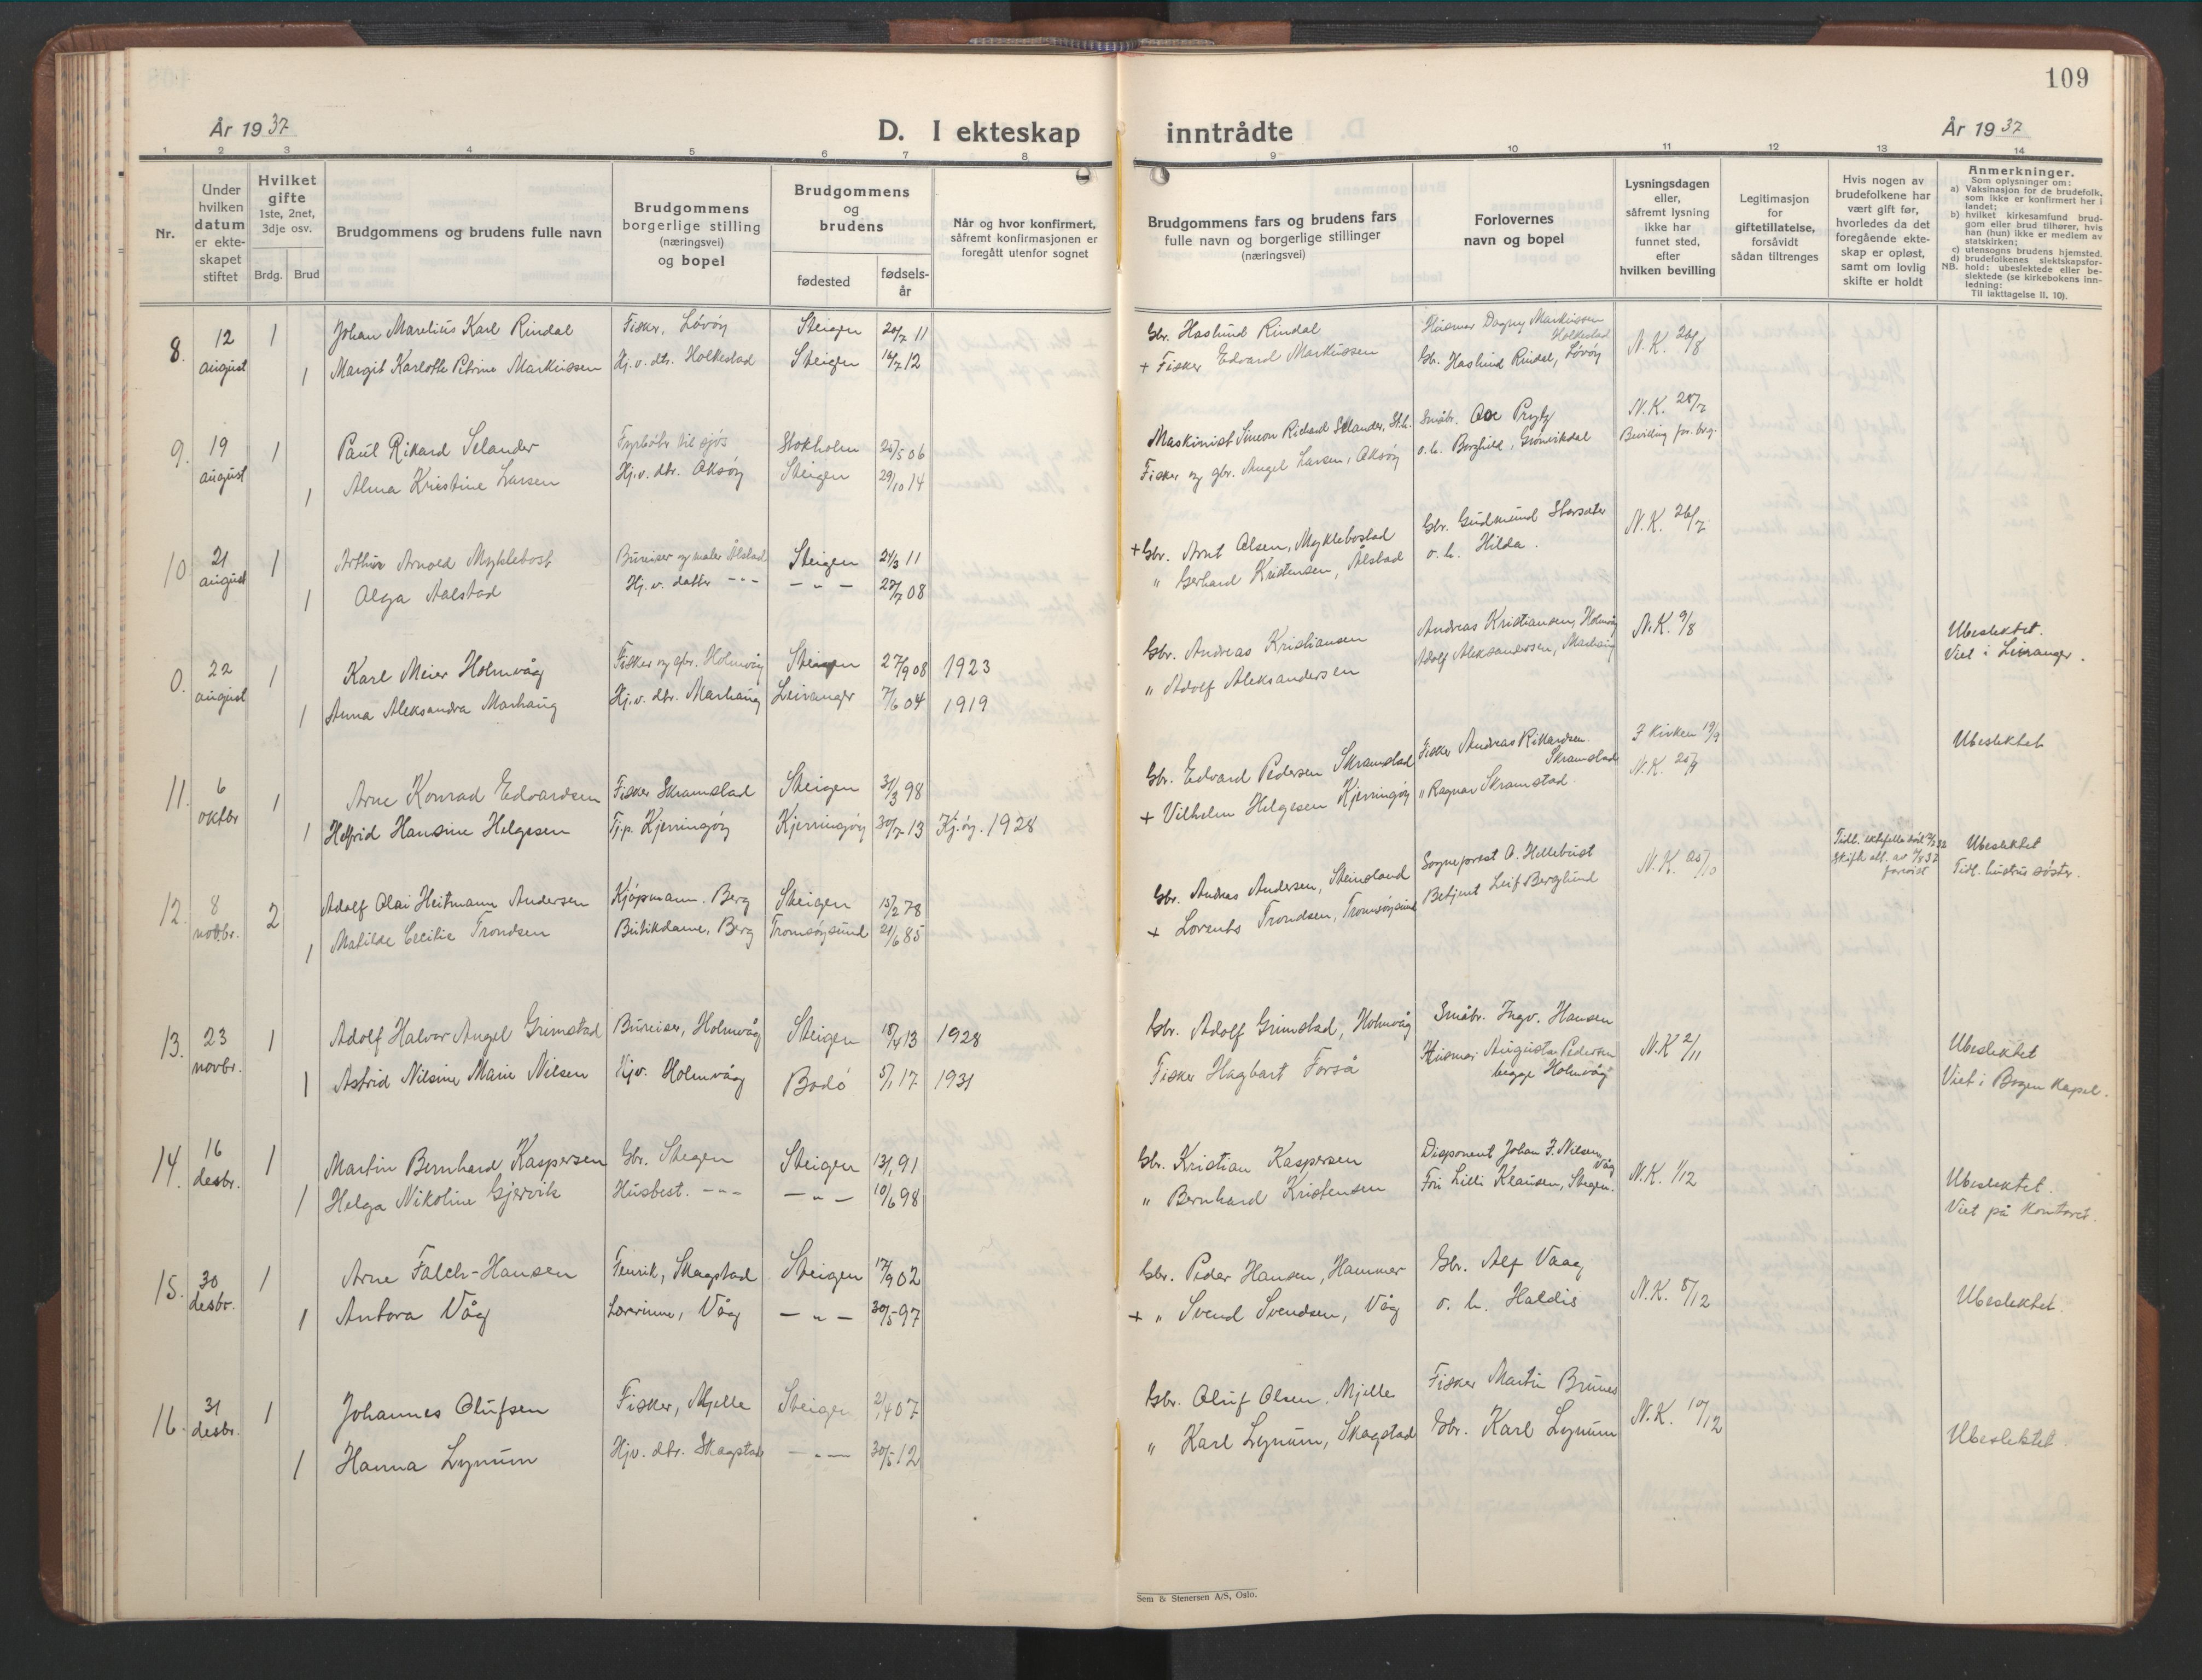 109
År 1937
D. I ekteskap inntrådte
År 1937
1 2 3 4 5 6 7 8 9 10 11 12 13 14
Nr.
Under hvilken datum er ekteskapet stiftet
Hvilket gifte
1ste, 2net, 3dje osv.
Brdg. Brud
Brudgommens og brudens fulle navn
Brudgommens borgerlige stilling (næringsvei) og bopel
Brudgommens og brudens
fødested
fødselsår
Når og hvor konfirmert, såfremt konfirmasjonen er foregått utenfor sognet
Brudgommens fars og brudens fars fulle navn og borgerlige stillinger (næringsvei)
Forlovernes navn og bopel
Lysningsdagen eller, såfremt lysning ikke har funnet sted, efter hvilken bevilling
Legitimasjon for giftetillatelse, forsåvidt sådan tiltrenges
Hvis nogen av brudefolkene har vært gift før, hvorledes da det foregående ekteskap er opløst, samt om lovlig skifte er holdt
Anmerkninger.
Som oplysninger om:
a) Vaksinasjon for de brudefolk, som ikke er konfirmert her i landet;
b) hvilket kirkesamfund brudgom eller brud tilhører, hvis han (hun) ikke er medlem av statskirken;
c) utensogns brudens hjemsted.
d) brudefolkenes slektskapsforhold: ubeslektede eller beslektede (se kirkebokens innledning:
NB.
Til iakttagelse II, 10).
8. 12 august 1 Johan Marelius Karl Rindal Fisker, Løvøy Steigen 20/7 11 Gbr. Haslund Rindal Husmor Dagny Markussen Holkestad N.K. 26/8
1 Margit Karlotte Petrine Markussen Hj.v. dtr. Holkestad Steigen 16/7 12 + Fisker Edvard Markussen Gb. Haslund Rindal, Løvøy
9. 19 august 1 Paul Rikard Selander Fyrbøter til sjøs Stokholm 25/5 06 Maskinist Simeon Richard Selander, St.h. Småbr. Ove Prytz N.K. 28/7
1 Alma Kristine Larsen Hj.v. dtr. Aksøy Steigen 29/10 14 Fisker og gbr. Angel Larsen, Aksøy o.h. Borghild, Grønvikdal Bevilling for brg.
10 21 august 1 Arthur Arnold Myklebost Bureiser og maler Ålstad Steigen 24/3 11 + Gbr. Arnt Olsen, Myklebostad Gbr. Gudmund Storsæter N.K. 26/7
1 Olga Aalstad Hj.v. datter --- - " - 27/7 08 " Gerhard Kristensen, Ålstad o.h. Hilda.
0. 22 august 1 Karl Meier Holmvåg Fisker og gbr. Holmvåg Steigen 27/9 08 1923 Gbr. Andreas Kristiansen Andreas Kristiansen, Holmvåg N.K. 9/8 Ubeslektet.
Viet i Leiranger.
1 Anna Aleksandra Marhaug Hj.v. dtr. Marhaug Leiranger 7/6 04 1919 " Adolf Aleksandersen Adolf Aleksandersen, Marhaug
11. 6 oktbr 1 Arne Konrad Edvardsen Fisker Skramstad Steigen 31/3 98 Gbr. Edvard Pedersen Skramstad Fisker Andreas Rikardsen Skramstad I kirken 19/9 Ubeslektet
1 Helfrid Hansine Helgesen Tj.p. Kjerringøy Kjerringøy 30/7 13 Kj.øy. 1928 + Vilhelm Helgesen Kjerringøy " Ragnar Skramstad N.K. 25/9
12. 8 novbr. 2 Adolf Olai Heitmann Andersen Kjøpmann. Berg Steigen 15/2 78 Gbr. Andreas Andersen, Steinsland Sogneprest O. Hellebust N.K. 25/10 Ubeslektet
Tidl. hustrus søster.
1 Matilde Cecilie Trondsen Butikdame, Berg Tromsøysund 21/6 85 + Lorents Trondsen, Tromsøysund Betjent Leif Berglund
13. 23 novbr. 1 Adolf Halvor Angel Grimstad Bureiser, Holmvåg Steigen 18/4 13 1928 Gbr. Adolf Grimstad, Holmvåg Småbr. Ingv. Hansen N.K 2/11 Ubeslektet
Viet i Bogen Kapel.
1 Astrid Nilsine Marie Nilsen Hjv. Holmvåg Bodø 5/1 17 1931 Fisker Hagbart Forså Husmor Augusta Pedersen begge Holmvåg
14. 16 desbr. 1 Martin Bernhard Kaspersen Gbr. Stegen Steigen 13/1 91 Gbr. Kristian Kaspersen Disponent Johan I. Nilsen, Våg N.K. 1/12 Ubeslektet.
Viet på kontoret.
1 Helga Nikoline Gjervik Husbest. --- - " - 10/6 98 " Bernhard Kristensen Fru Lilli Klausen, Stegen.
15. 30 desbr. 1 Arne Falch-Hansen Fenrik, Skagstad Steigen 17/9 02 Gbr. Peder Hansen, Hammer Gbr. Alf Vaag N.K. 8/12 Ubeslektet.
1 Antora Våg Lærerinne, Våg - " - 30/5 97 + " Svend Svendsen, Våg o.h. Haldis
16. 31 desbr. 1 Johannes Olufsen Fisker, Mjelle Steigen 2/4 07 Gbr. Oluf Olsen. Mjelle Fisker Martin Brunes N.K. 10/12 Ubeslektet
1 Hanna Lynum Hjv. dtr. Skagstad - " - 30/5 12 " Karl Lynum, Skagstad Gbr. Karl Lynum
Sem & Stenersen A/S, Oslo.